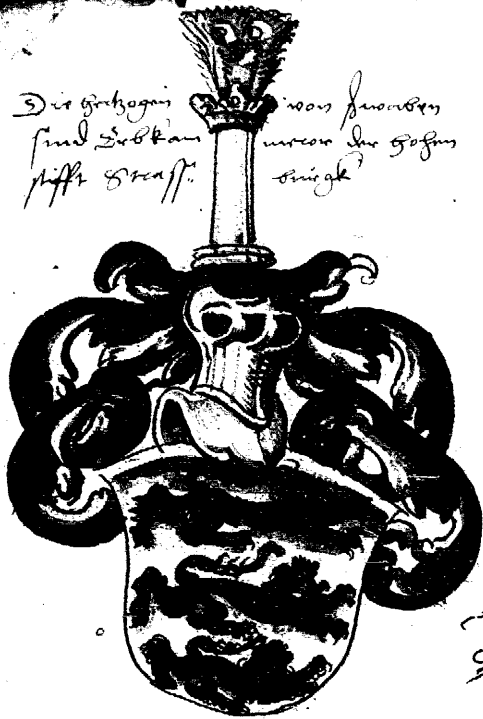 Die hertzogen von swaben
sind Erbkammerer der hohen
stifft Strassburgk